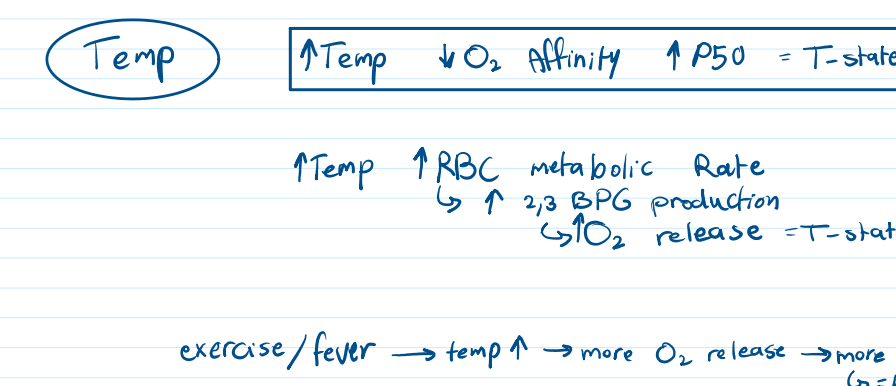 Temp ↑Temp ↓O₂ Affinity ↑P50 = T-state
↑Temp ↑RBC metabolic Rate
↳ ↑ 2,3 BPG production
↳↑O₂ release =T-stat
exercise/fever → temp↑ → more O₂ release → more